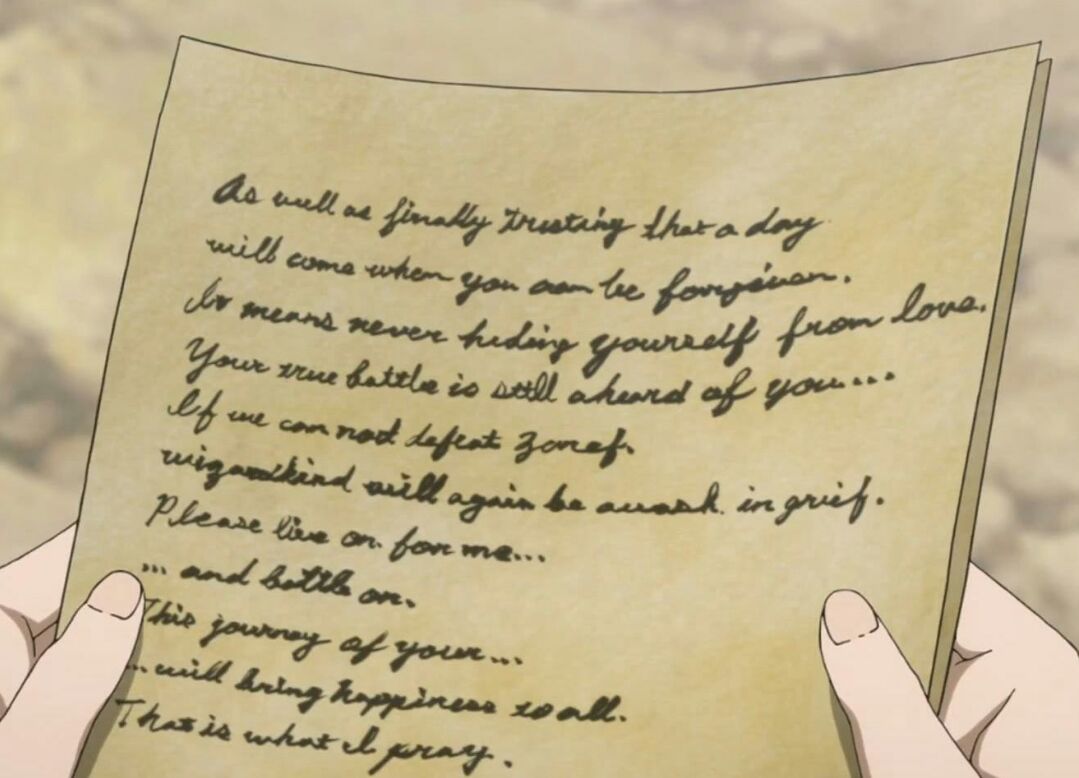 As well as finally trusting that a day
will come when you can be forgiven.
It means never hiding yourself from love.
Your true battle is still ahead of you...
If we can not defeat Zeref.
wizardkind will again be awash in grief.
Please live on for me...
... and battle on.
This journey of your...
...will bring happiness to all.
That is what I pray.